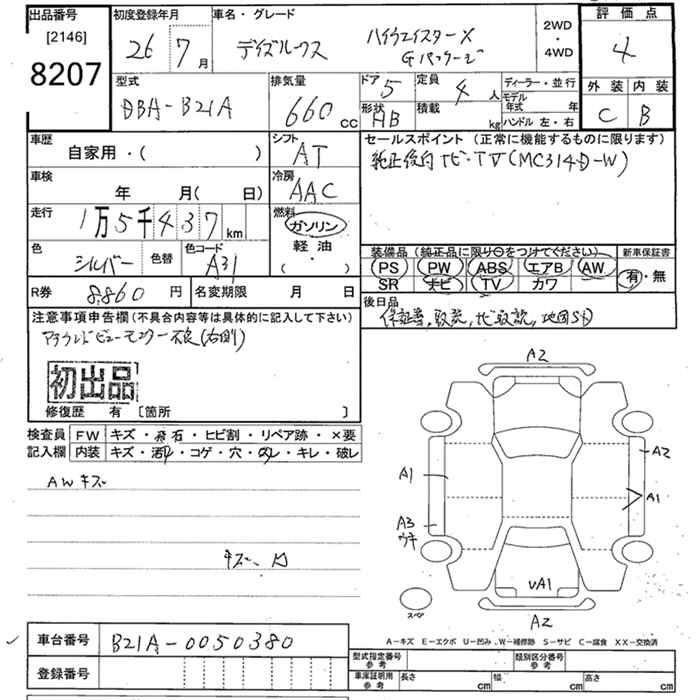 出品番号
[2146]
8207
初度登録年月
26 7月
車名・グレード
デイズルークス ハイウェイスターX
Gパッケージ
2WD
・
4WD
評価点
4
外装 内装
C B
型式
DBA-B21A
排気量
660 cc
ドア 5
形状 HB
定員 4 人
積載 kg
ディーラー・並行
モデル年式 年
ハンドル 左・右
車歴
自家用・( )
シフト
AT
車検
年 月( 日)
冷房
AAC
走行
1万5千437km
燃料
ガソリン
軽油・
( )
色 シルバー 色替 色コード A31
R券 8,860円 名変期限 月 日
セールスポイント(正常に機能するものに限ります)
純正後付ナビ・TV(MC314D-W)
装備品(純正品に限り○をつけてください)
PS PW ABS エアB AW
SR ナビ TV カワ
新車保証書
有・無
後日品
保証書,取説,ナビ取説,地図SD
注意事項申告欄(不具合内容等は具体的に記入して下さい)
アラウンドビューモニター不良(右側)
初出品
修復歴 有 [箇所 ]
検査員 FW キズ・飛石・ヒビ割・リペア跡・×要
記入欄 内装 キズ・汚れ・コゲ・穴・スレ・キレ・破レ
AWキズ
キズ、凹
A2
A1
A3
ウキ
A2
A1
vA1
A2
スペア
A-キズ E-エクボ U-凹み W-補修跡 S-サビ C-腐食 XX-交換済
車台番号 B21A-0050380
登録番号
型式指定番号
参考
類別区分番号
参考
車庫証明用
参考
長さ cm 幅 cm 高さ cm